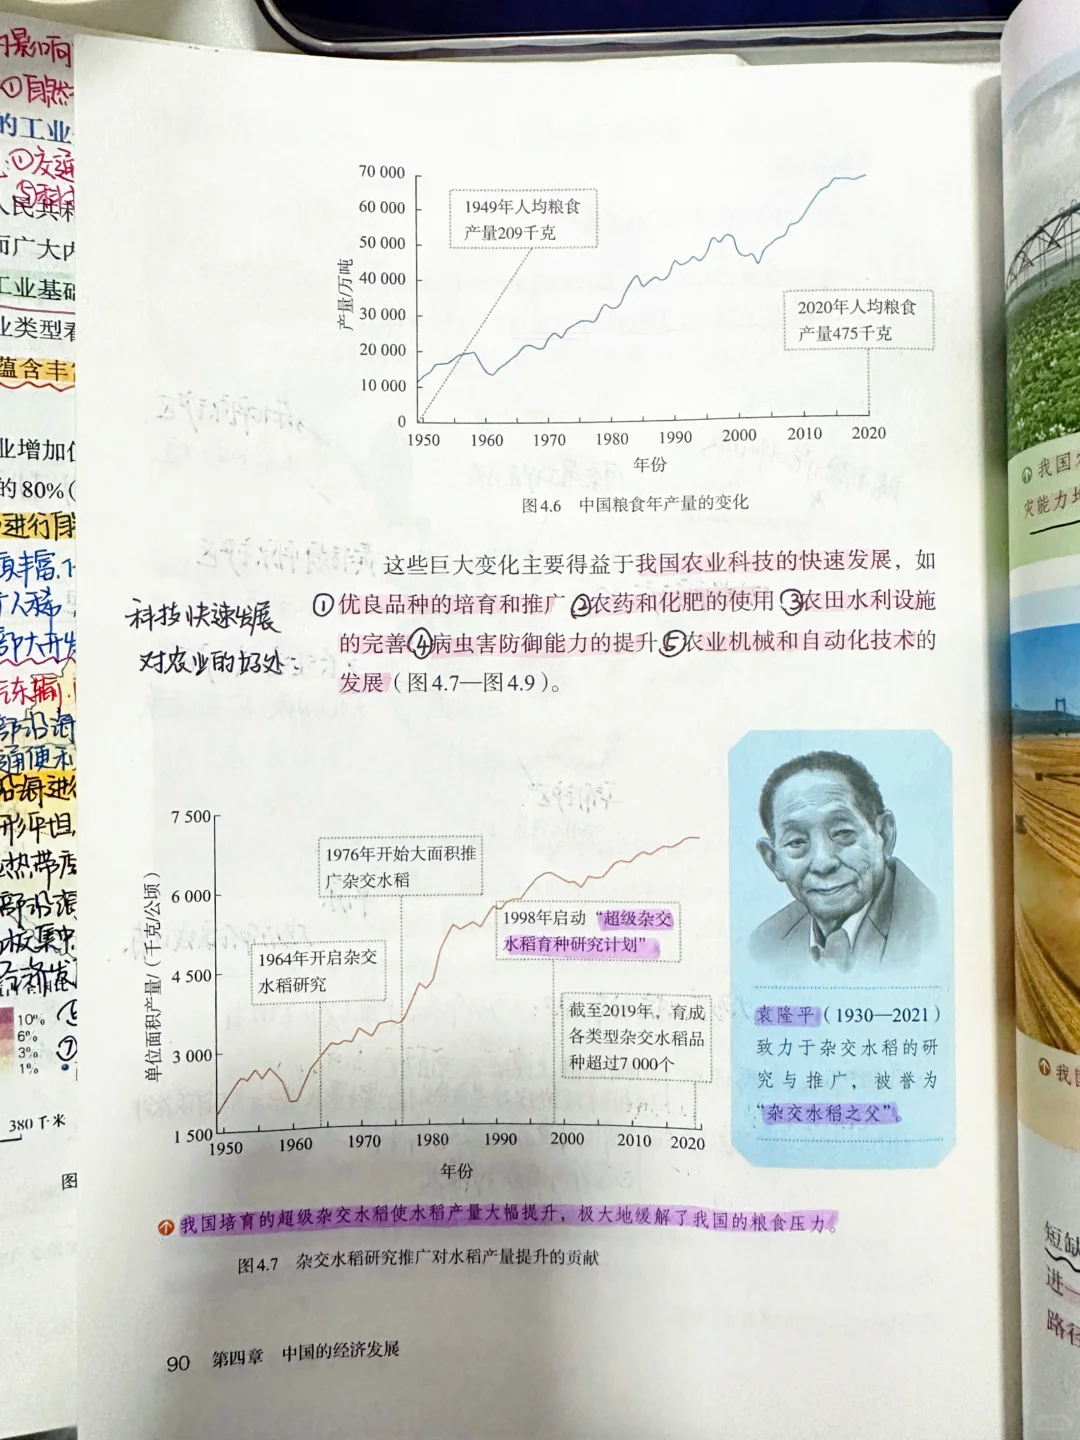 70 000
60 000
50 000
40 000
30 000
20 000
10 000
0
产量/万吨
1949年人均粮食
产量209千克
2020年人均粮食
产量475千克
1950 1960 1970 1980 1990 2000 2010 2020
年份
图4.6 中国粮食年产量的变化
这些巨大变化主要得益于我国农业科技的快速发展，如
①优良品种的培育和推广②农药和化肥的使用③农田水利设施
的完善④病虫害防御能力的提升⑤农业机械和自动化技术的
发展（图4.7—图4.9）。
科技快速发展
对农业的好处：
7 500
6 000
4 500
3 000
1 500
单位面积产量/（千克/公顷）
1976年开始大面积推
广杂交水稻
1964年开启杂交
水稻研究
1998年启动“超级杂交
水稻育种研究计划”
截至2019年，育成
各类型杂交水稻品
种超过7 000个
1950 1960 1970 1980 1990 2000 2010 2020
年份
袁隆平（1930—2021）
致力于杂交水稻的研
究与推广，被誉为
“杂交水稻之父”。
我国培育的超级杂交水稻使水稻产量大幅提升，极大地缓解了我国的粮食压力。
图4.7 杂交水稻研究推广对水稻产量提升的贡献
90 第四章 中国的经济发展
影响
①自然
的工业
①交通
人民共和
而广大内
工业基础
业类型看
蕴含丰富
业增加值
的80%（
进行自
部沿海
通便利
形平坦
10%
6%
3%
1%
380千米
图
我国
灾能力
我国
短缺
进一
路径